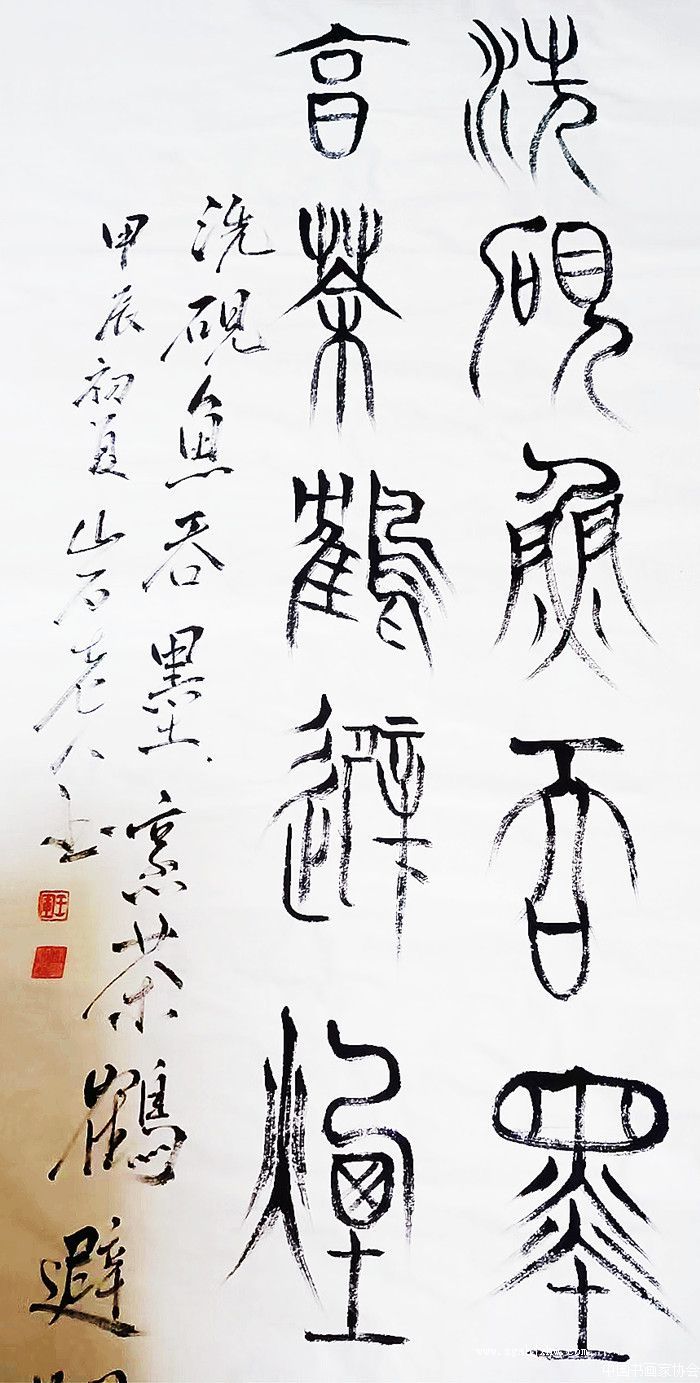 洗硯魚吞墨
亯茶鶴避煙
洗硯魚吞墨烹茶鶴避
甲辰初夏山石老人书
中国书画家协会